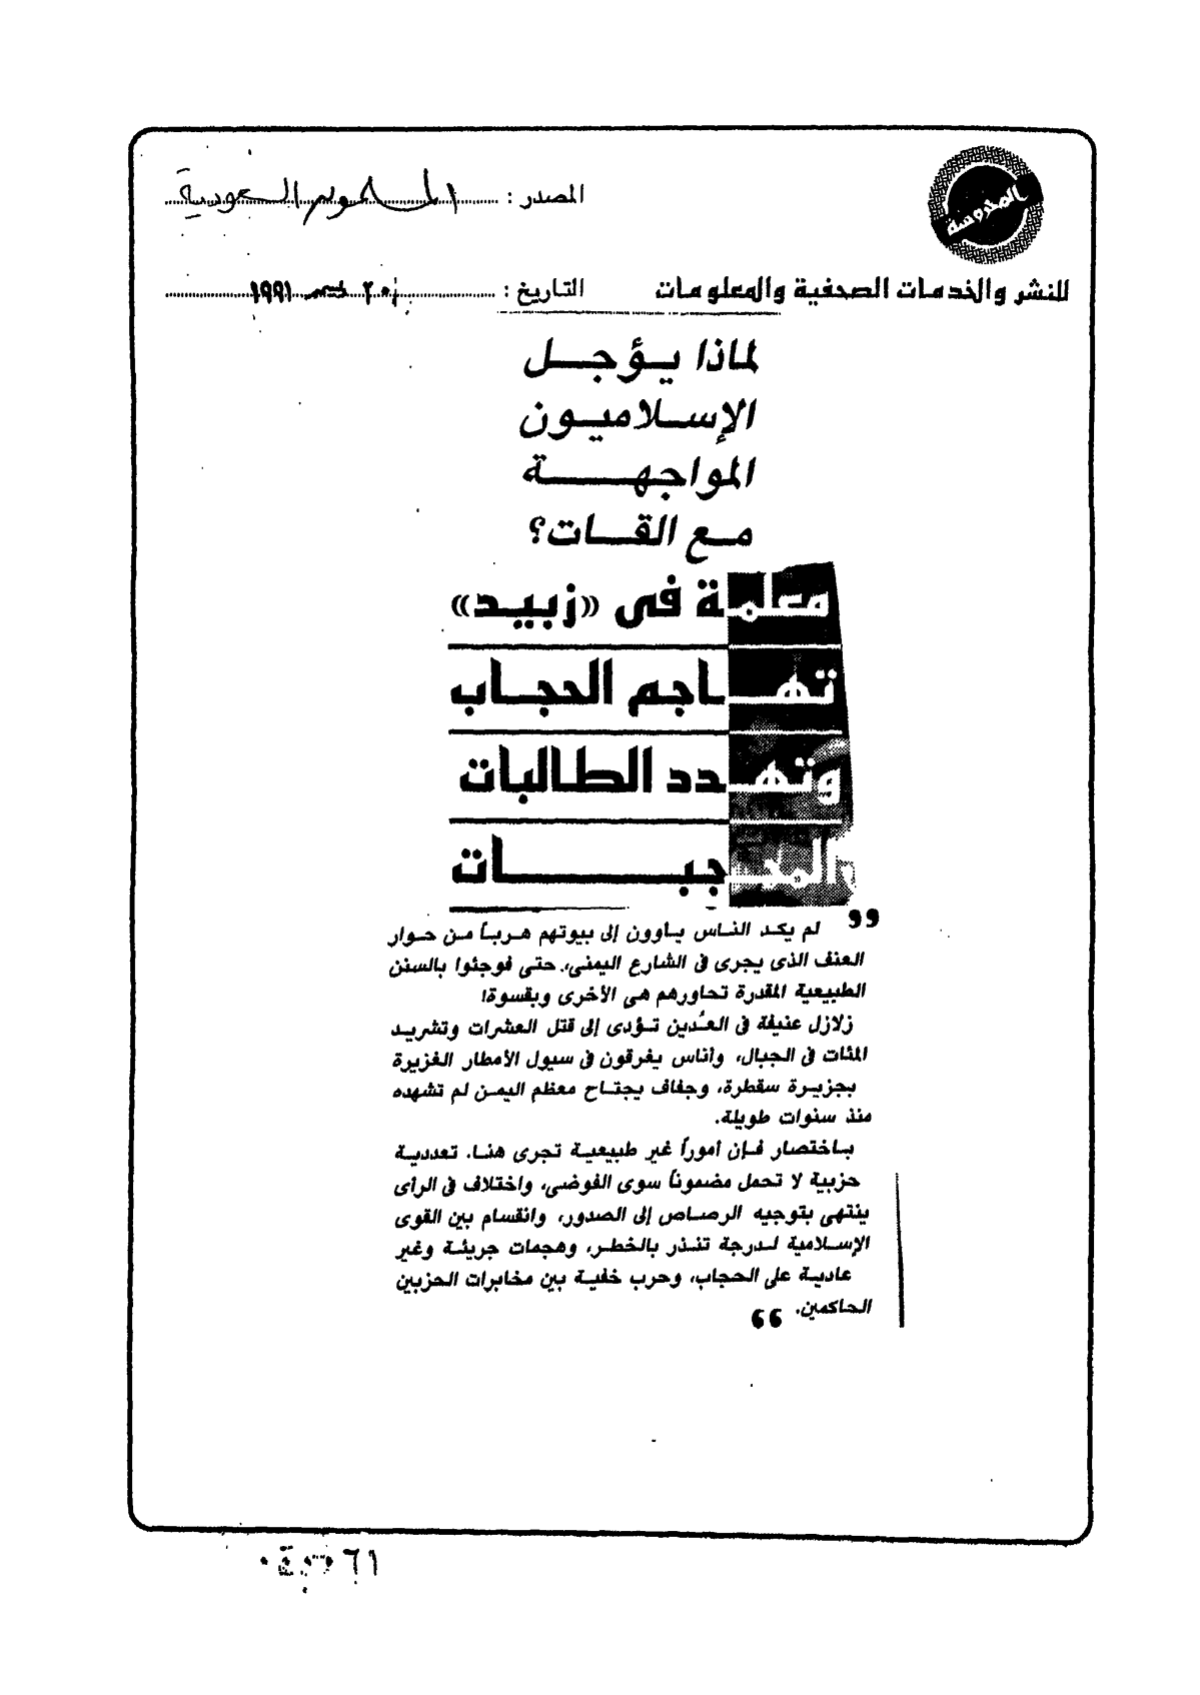 المحروسة
المصدر : المسلمون السعودية
للنشر والخدمات الصحفية والمعلومات
التاريخ : ٢٠ ديسمبر ١٩٩١
لماذا يؤجل
الإسلاميون
المواجهة
مع القات؟
معلمة فى «زبيد»
تهاجم الحجاب
وتهدد الطالبات
والمحجبات
لم يكد الناس يأوون إلى بيوتهم هرباً من حوار
العنف الذى يجرى فى الشارع اليمنى، حتى فوجئوا بالسنن
الطبيعية المقدرة تحاورهم هى الأخرى وبقسوة!
زلازل عنيفة فى العُدين تؤدى إلى قتل العشرات وتشريد
المئات فى الجبال، وأناس يغرقون فى سيول الأمطار الغزيرة
بجزيرة سقطرة، وجفاف يجتاح معظم اليمن لم تشهده
منذ سنوات طويلة.
باختصار فإن أموراً غير طبيعية تجرى هنا. تعددية
حزبية لا تحمل مضموناً سوى الفوضى، واختلاف فى الرأى
ينتهى بتوجيه الرصاص إلى الصدور، وانقسام بين القوى
الإسلامية لدرجة تنذر بالخطر، وهجمات جريئة وغير
عادية على الحجاب، وحرب خفية بين مخابرات الحزبين
الحاكمين.